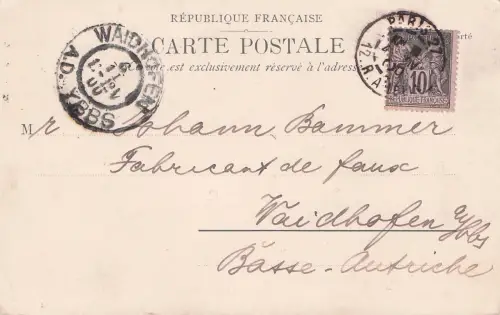 RÉPUBLIQUE FRANÇAISE
CARTE POSTALE
est exclusivement réservé à l'adresse
WAIDHOFEN
A.D. YBBS
PARIS
10
REPUBLIQUE FRANÇAISE
Mr Johann Bammer
Fabricant de faux
Waidhofen y/Ybbs
Basse-Autriche